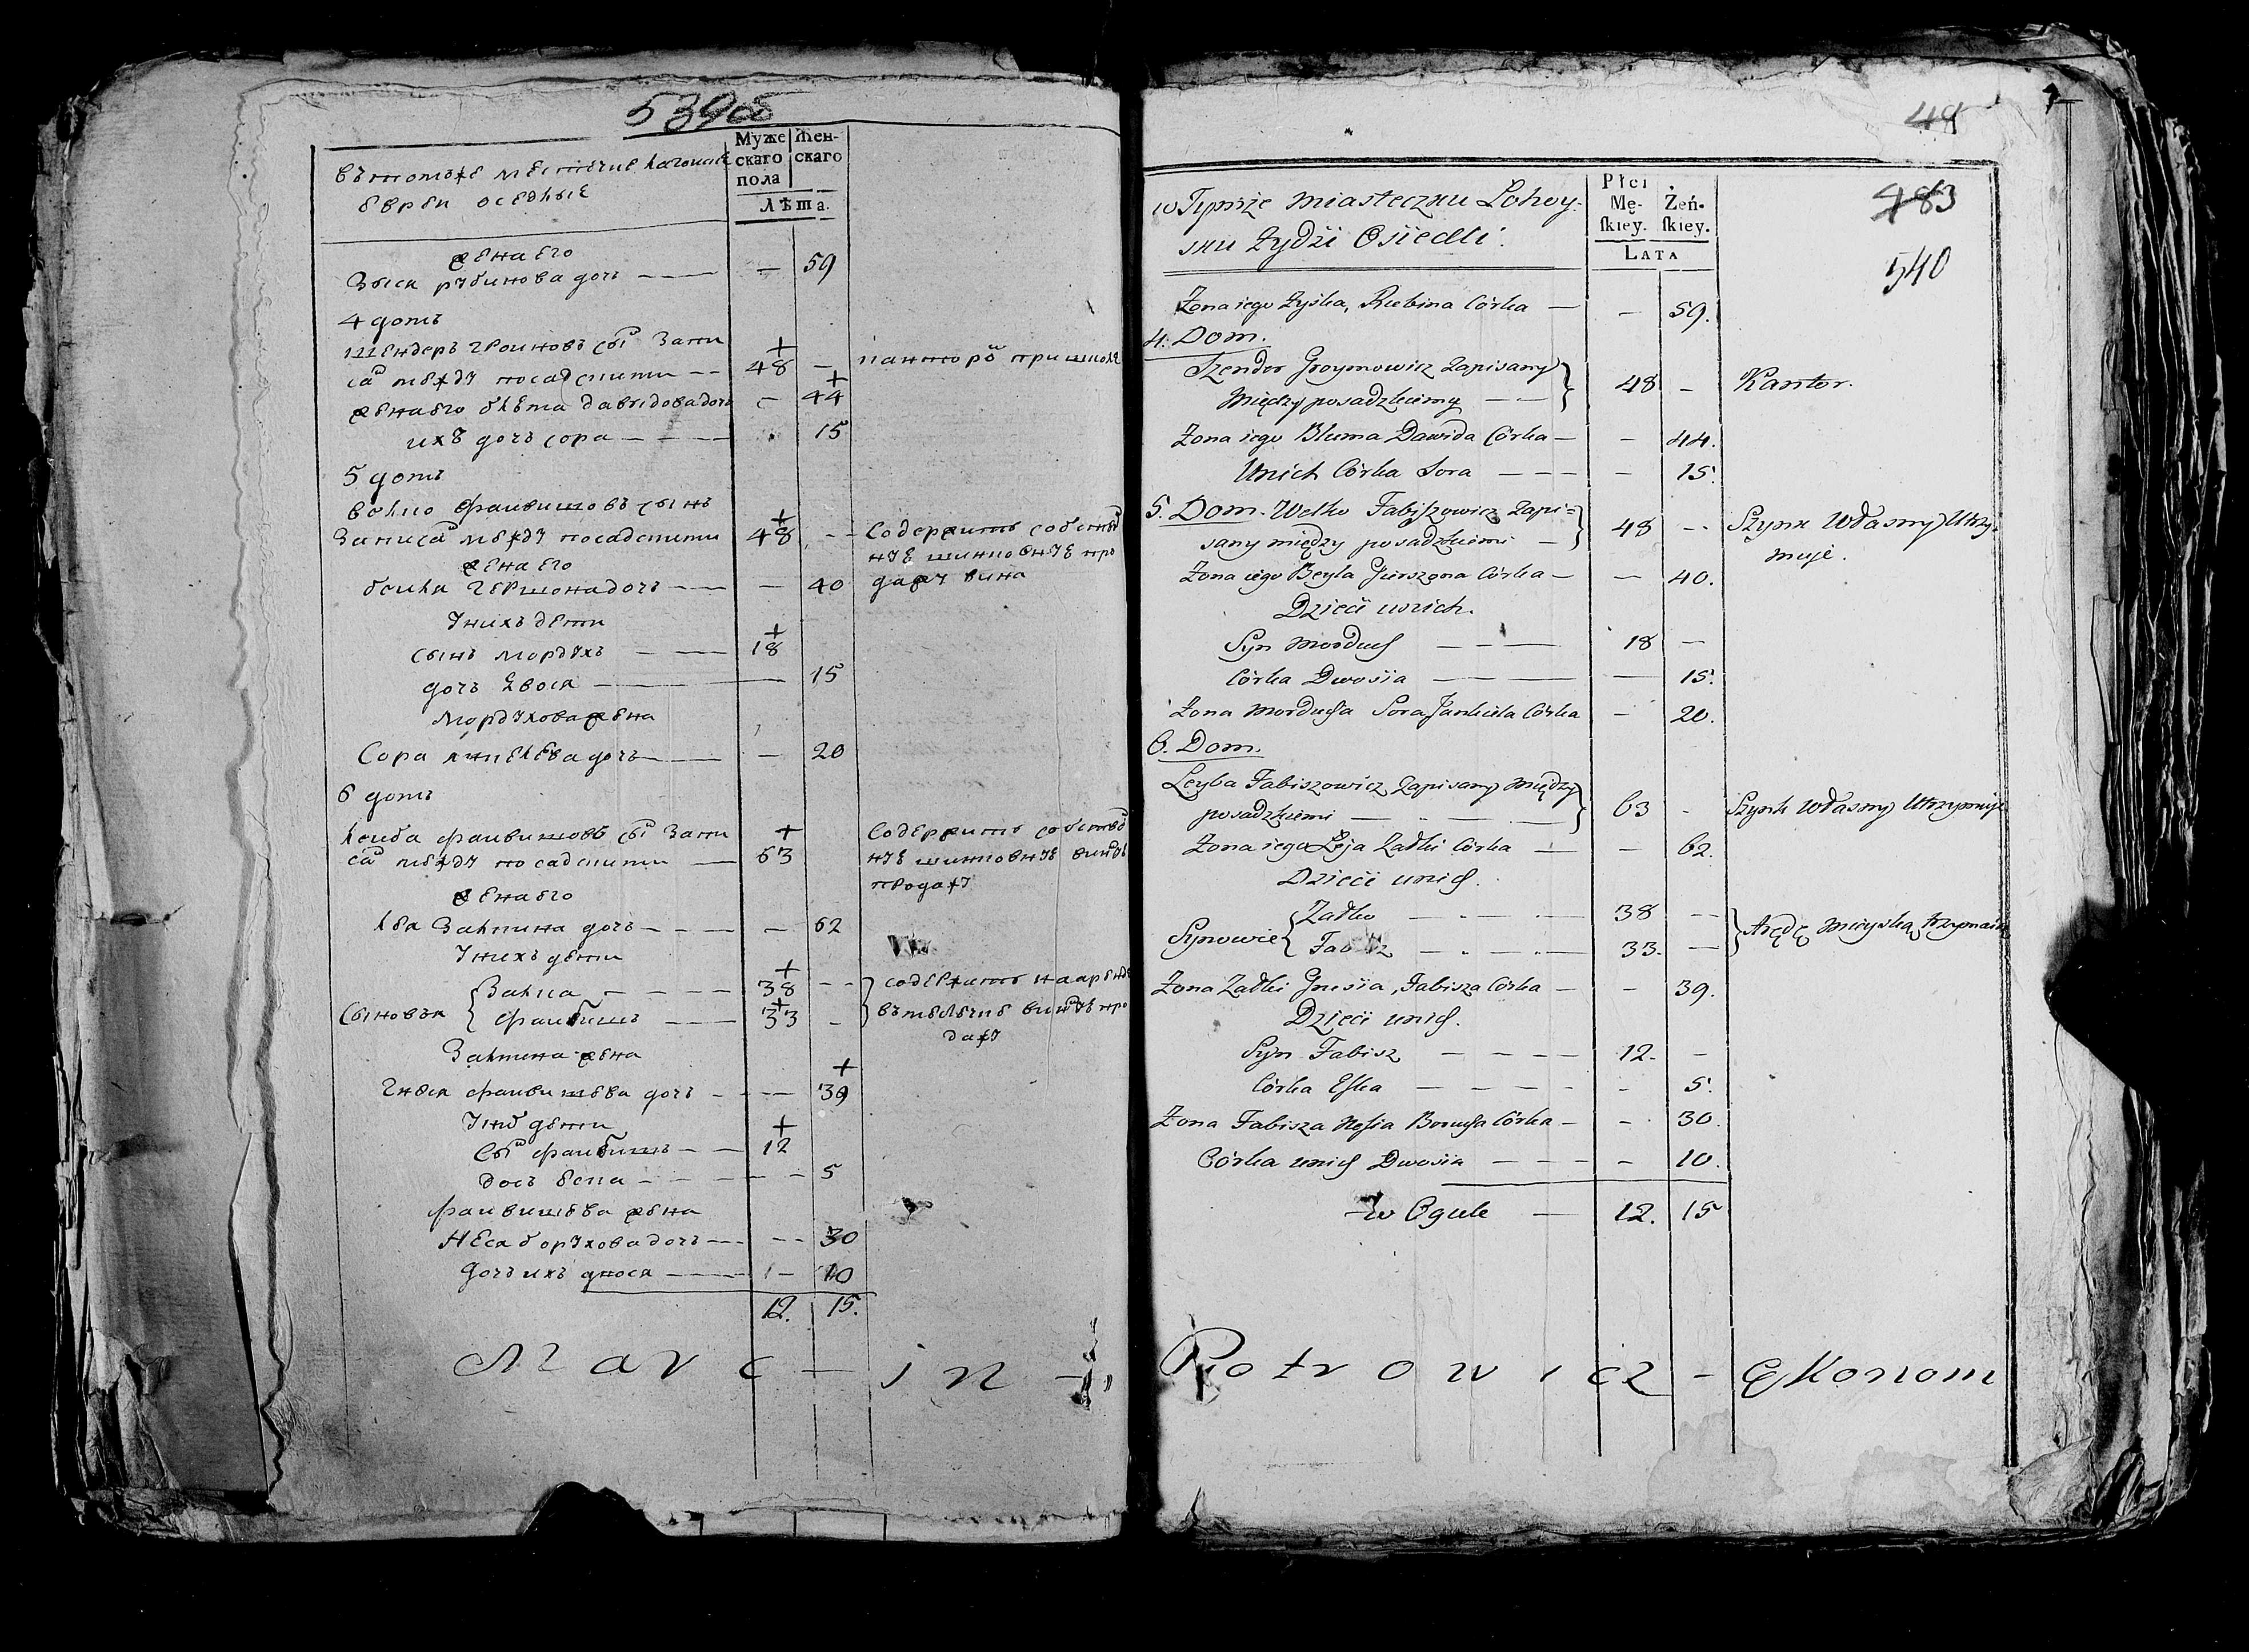 539об
въ томъ же местечке Лагоиске
евреи оседлые
Муже
скаго
пола
Жен-
скаго
Лѣта.
жена его
Зыся рубинова дочь — — 59
4 домъ
Шендеръ Громовъ сы Запи
са между посадскими — 48 —
канторъ при школе
жена его блюма давидова дочь — 44
ихъ дочь сора — — — 15
5 домъ
Велко Фаивишовъ сынъ
Записа между посадскими 48 — —
Содержитъ собствен
ную шинковную про
дажу вина
жена его
беила Гершона дочь — — 40
У нихъ дети
сынъ мордухъ — — 18
дочь двося — 15
мордухова жена
Сора янкелева дочь — — 20
6 домъ
Леиба фаивишовъ сы Запи
са между посадскими — 63
Содержитъ собствен
ную шинковную винную
продажу
жена его
Лея Залкина дочь — — — 62
У нихъ дети
Сыновья
Залка — — — — 38 — —
Фаибишъ — — 33 —
содержитъ на аренде
въ местечке винную про
дажу
Залкина жена
Гнеся фаивишева дочь — — — 39
У них дети
Сы фаибишъ — — 12
дочь еска — — — — 5
фаивишева жена
Неся борухова дочь — — — 30
Дочь ихъ двося — — 10
12. 15.
Marc - in -
48
483
540
w Tymże miasteczku Lohoy-
sku Żydzi Osiedli.
Płci
Mę-
skiey.
Żeń-
skiey.
LATA
Żona iego Zyska, Rubina Córka — — 59.
4. Dom.
Szender Groymowicz zapisany
między posadzkiemi — — 48 — Kantor.
Żona iego Bluma Dawida Córka — — 44.
Unich Córka Sora — — — — 15.
5. Dom. Welko Fabiszowicz zapi=
sany między posadzkiemi — 48 — Szynk Własny Utrzy-
muje.
Żona iego Beyla Gierszona Córka — — 40.
Dzieci unich.
Syn Morduch — — — 18 —
Córka Dwosia — — — — 15.
Żona Morducha Sora Jankiela Córka — 20.
6. Dom.
Leyba Fabiszowicz zapisany między
posadzkiemi — — — 63 — Szynk Własny Utrzymuje
Żona iego Leja Zalki Córka — — 62.
Dzieci unich.
Synowie
Zalko — — — 38 —
Fabisz — — — 33. —
Arędę mieyską trzymaią
Żona Zalki Gnesia, Fabisza Córka — — 39.
Dzieci unich.
Syn Fabisz — — — — 12. —
Córka Eska — — — — — 5.
Żona Fabisza Nesia Borucha Córka — — 30.
Córka unich Dwosia — — — — 10.
w Ogule — 12. 15
Potrowicz - Ekonom